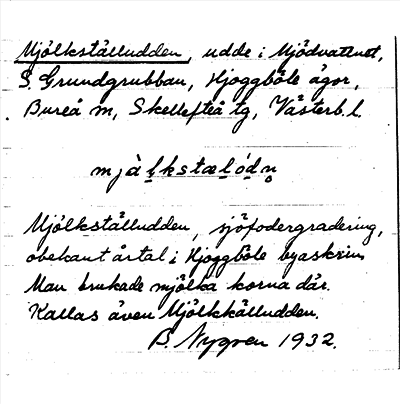 Mjölkställudden, udde i Mjödvattnet,
S. Grundgrubban, Hjoggböle ägor,
Bureå m, Skellefteå tg, Västerb. l.
mjàl̲kstæl̲ó́dn̥
Mjölkställudden, sjöfodergradering,
obekant årtal i Hjoggböle byaskrin.
Man brukade mjölka korna där.
Kallas även Mjölkkälludden.
B. Nygren 1932.